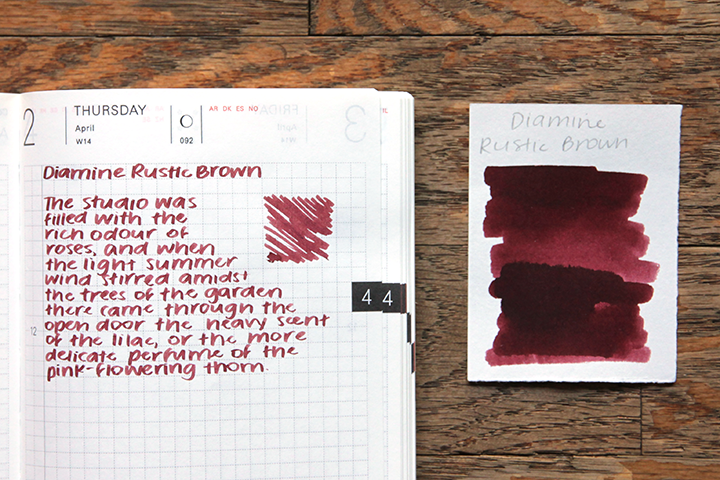 2
THURSDAY
April
W14
092
AR DK ES NO
Diamine Rustic Brown
The studio was
filled with the
rich odour of
roses, and when
the light summer
wind stirred amidst
the trees of the garden
there came through the
open door the heavy scent
of the lilac, or the more
delicate perfume of the
pink-flowering thorn.
12
4 4
Diamine
Rustic Brown